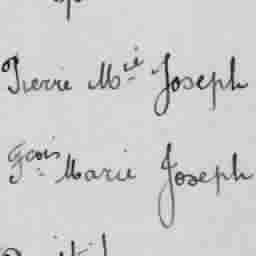 Pierre Mie Joseph
Fçois Marie Joseph